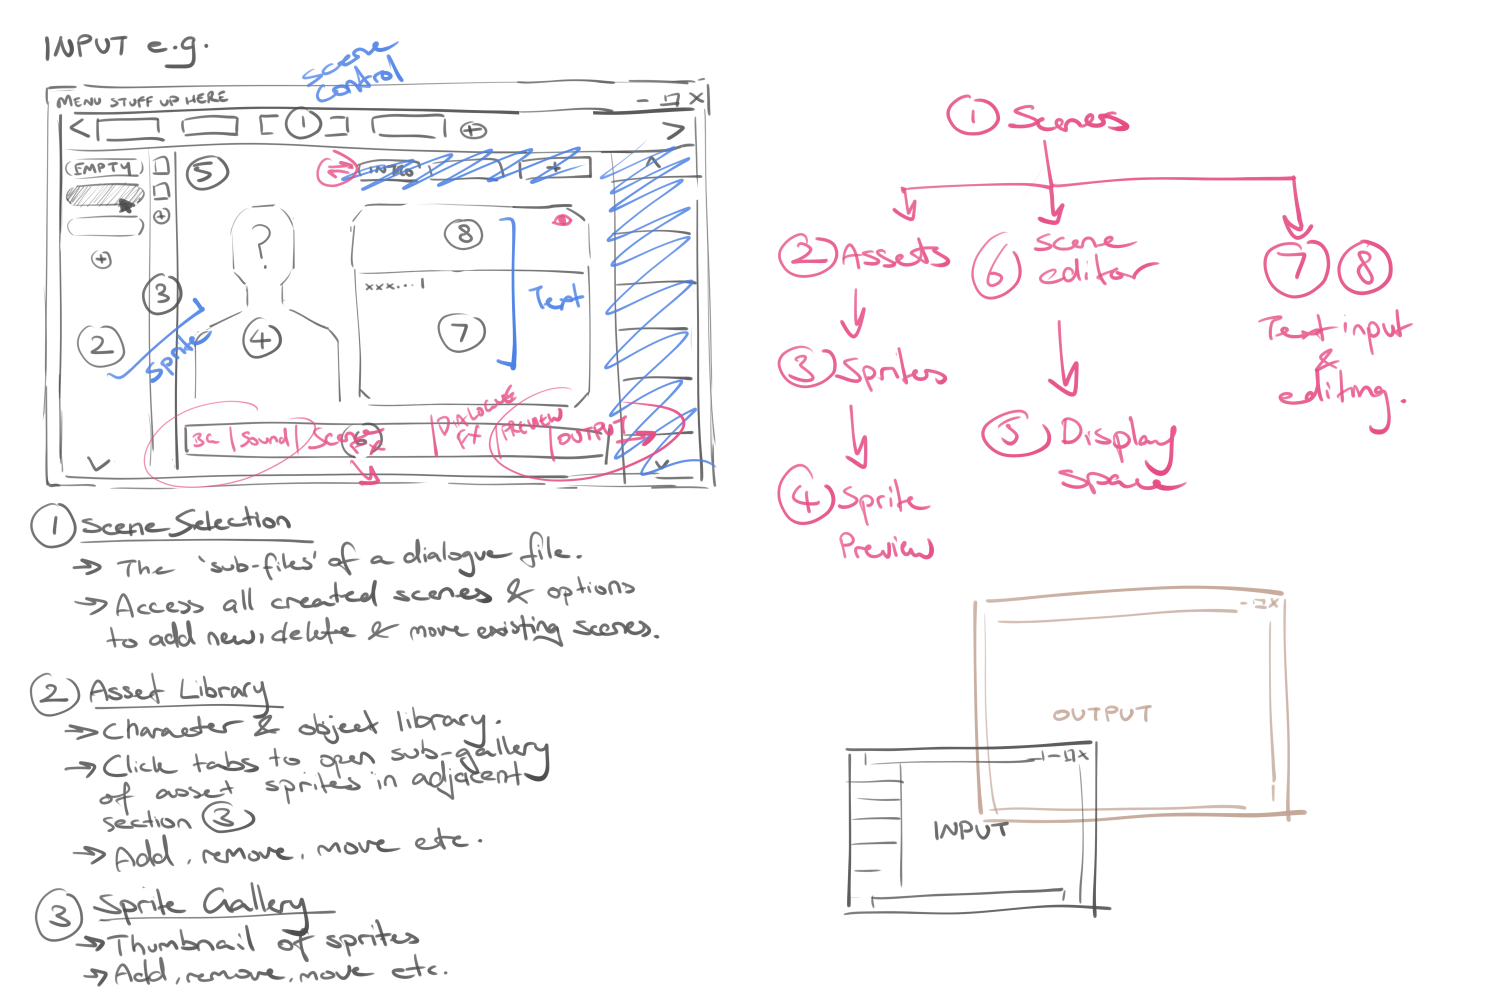 INPUT e.g.
scene
control
MENU STUFF UP HERE
- X
<
1
+
>
EMPTY
5
INTRO
+
+
?
8
3
xxx...1
Text
+
2
Sprite
4
7
BG | Sound | Scene FX
6
DIALOGUE
FX
PREVIEW
OUTPUT
1 Scene Selection
→ The 'sub-files' of a dialogue file.
→ Access all created scenes & options
to add new, delete & move existing scenes.
2 Asset Library
→ Character & object library.
→ Click tabs to open sub-gallery
of asset sprites in adjacent
section 3
→ Add, remove, move etc.
3 Sprite Gallery
→ Thumbnail of sprites
→ Add, remove, move etc.
1 Scenes
2 Assets
6 scene
editor
7 8
Text input
&
editing.
3 Sprites
5 Display
space
4 Sprite
Preview
- X
OUTPUT
- X
INPUT